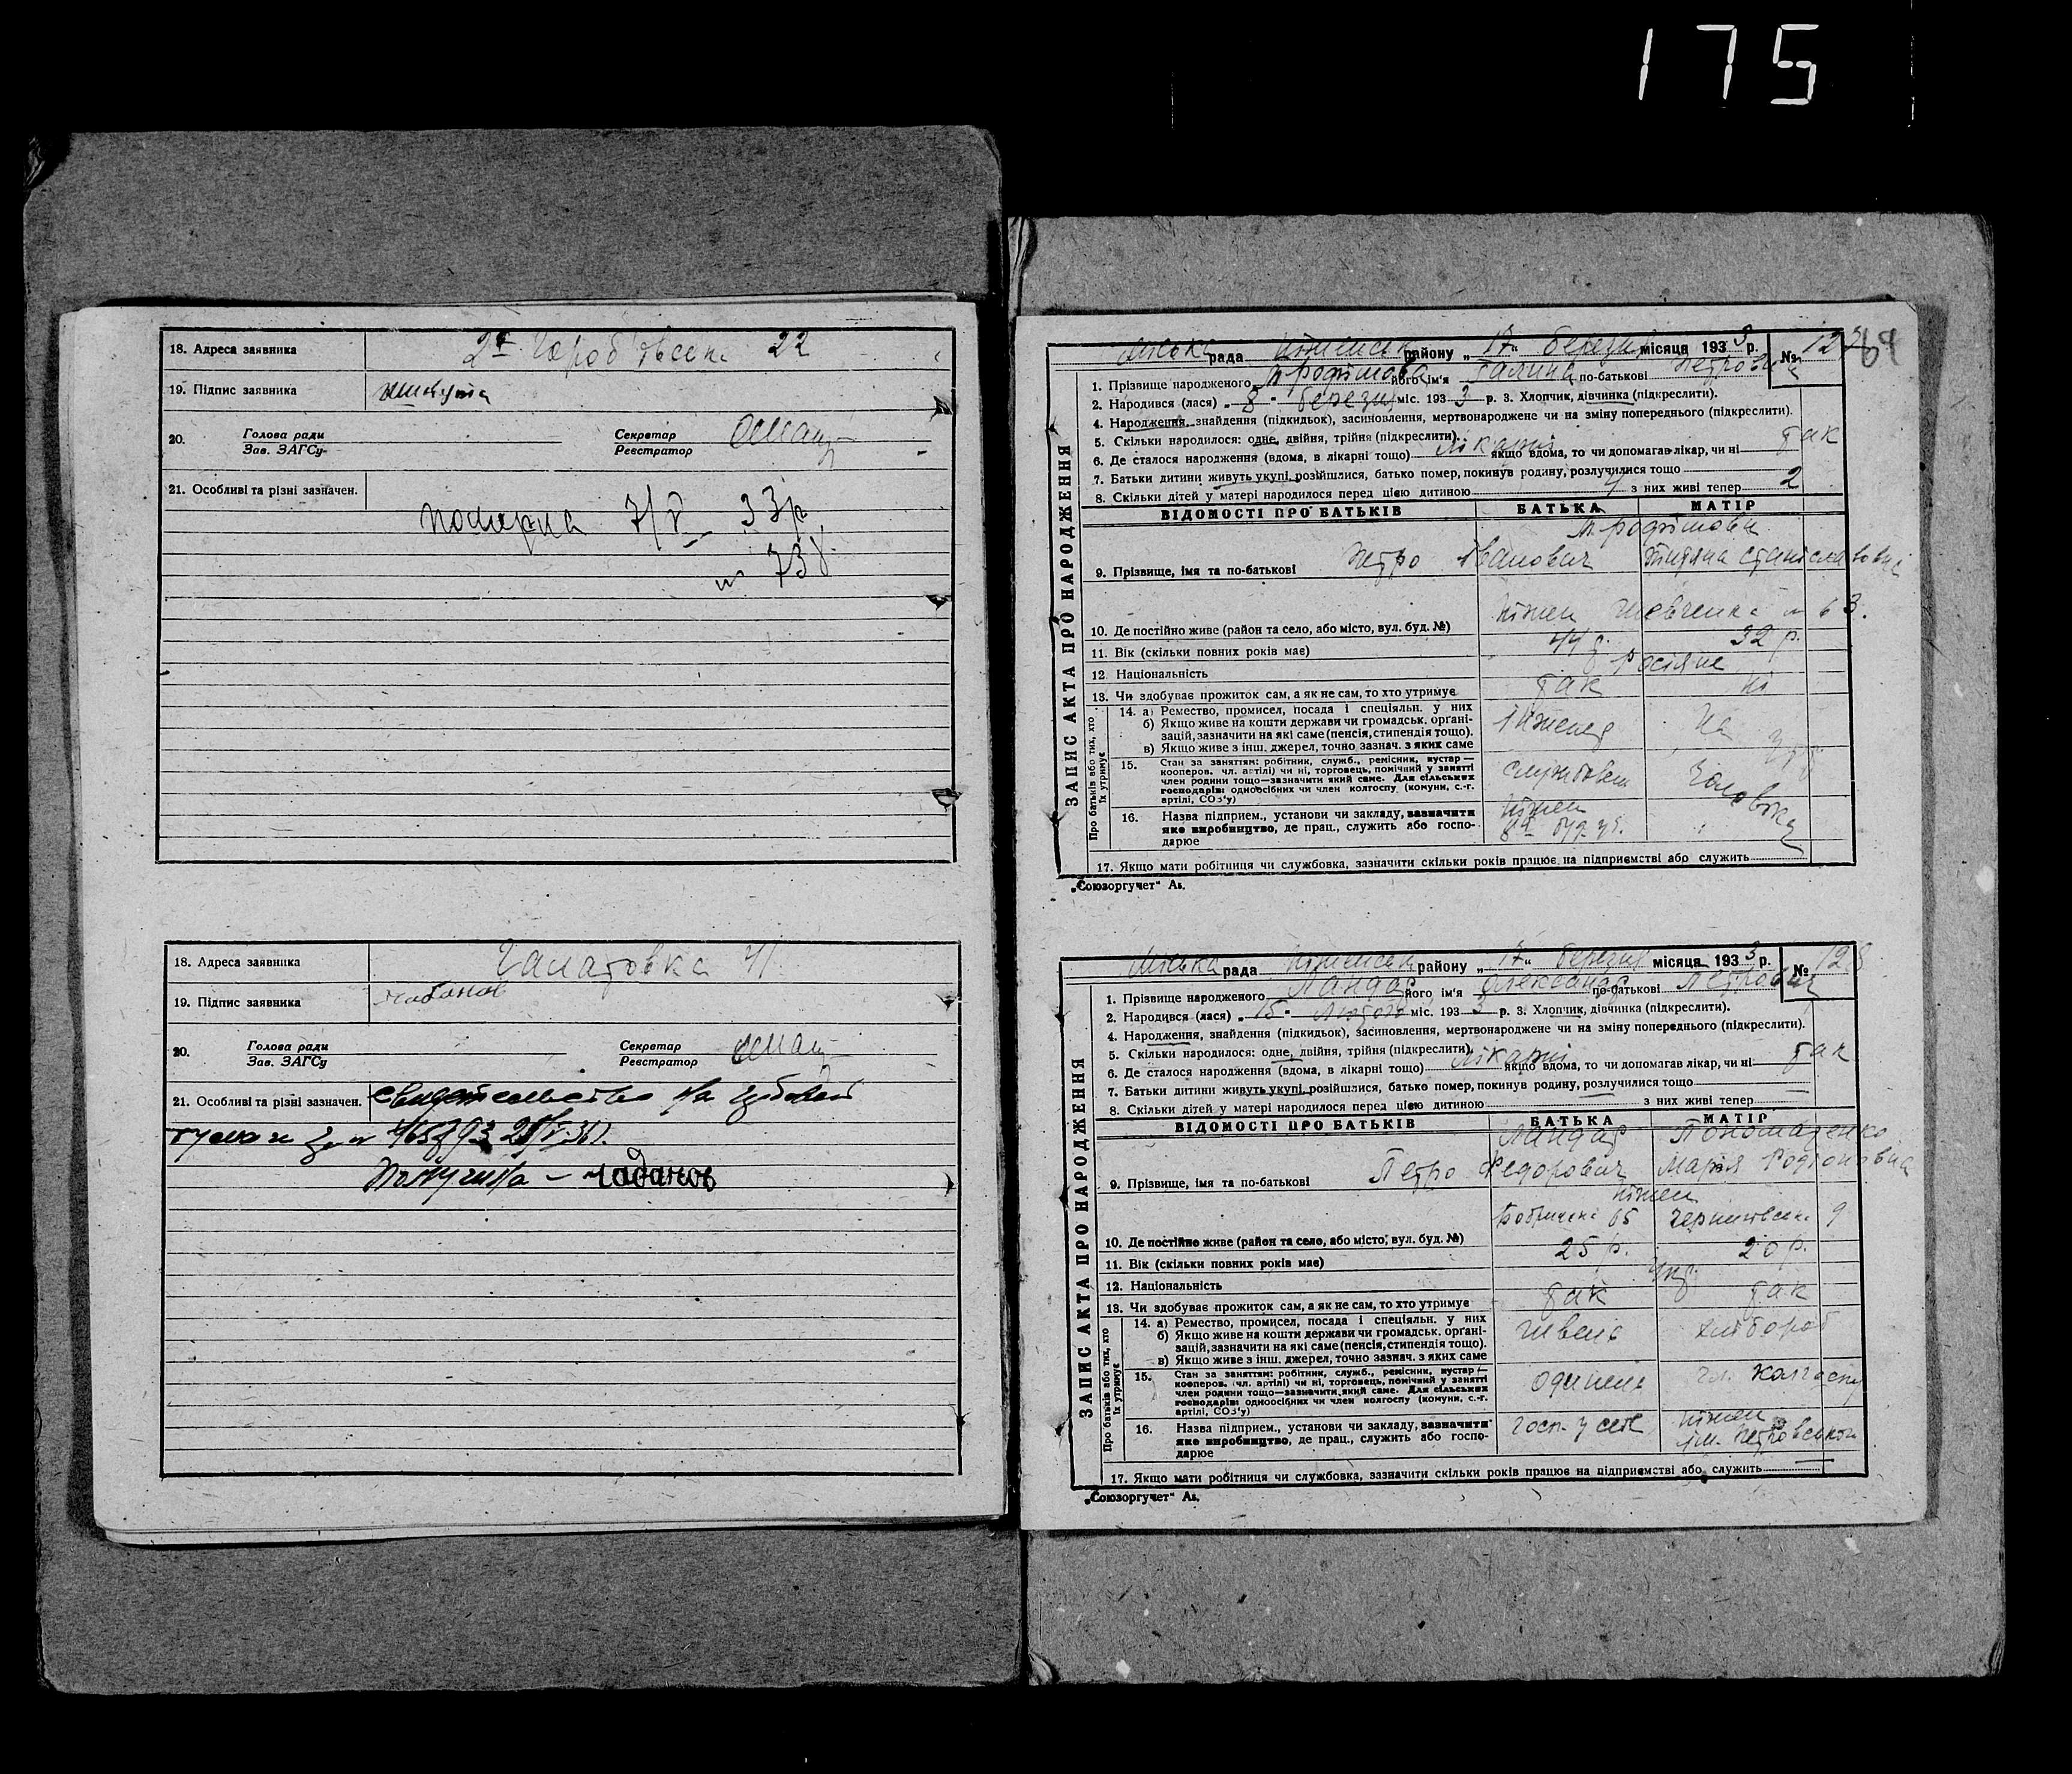 175
18. Адреса заявника 22
19. Підпис заявника
20. Голова ради Секретар
Зав. ЗАГСу Реєстратор
21. Особливі та різні зазначен.
померла 7/V 33р
№ 738
18. Адреса заявника 41
19. Підпис заявника Чабанов
20. Голова ради Секретар
Зав. ЗАГСу Реєстратор
21. Особливі та різні зазначен. свидетельство на
Получила – чабанов
ЗАПИС АКТА ПРО НАРОДЖЕННЯ
Міська рада Ніженськ району „17" березня місяця 1933 р. № 127
64
1. Прізвище народженого Трофімова його ім'я Галина по-батькові Петровна
2. Народився (лася) „8" березня міс. 1933 р. 3. Хлопчик, дівчинка (підкреслити).
4. Народження, знайдення (підкидьок), засиновлення, мертвонароджене чи на зміну попереднього (підкреслити).
5. Скільки народилося: одне, двійня, трійня (підкреслити).
6. Де сталося народження (вдома, в лікарні тощо) лікарні якщо вдома, то чи допомагав лікар, чи ні так
7. Батьки дитини живуть укупі, розійшлися, батько помер, покинув родину, розлучилися тощо
8. Скільки дітей у матері народилося перед цією дитиною 4 з них живі тепер 2
ВІДОМОСТІ ПРО БАТЬКІВ БАТЬКА МАТІР
Трофімови
9. Прізвище, імя та по-батькові Петро Іванович Тетяна Станіславовна
10. Де постійно живе (район та село, або місто, вул. буд. №) Ніжен Шевченка № 63.
11. Вік (скільки повних років має) 44 р. 32 р.
12. Національність Росіяне
13. Чи здобуває прожиток сам, а як не сам, то хто утримує так ні
Про батьків або тих, хто їх утримує
14. а) Ремество, промисел, посада і спеціяльн. у них
б) Якщо живе на кошти держави чи громадськ. орґані-
зацій, зазначити на які саме (пенсія, стипендія тощо). Інженер На
в) Якщо живе з інш. джерел, точно зазнач. з яких саме
15. Стан за заняттям: робітник, служб., ремісник, кустар—
кооперов. чл. артілі) чи ні, торговець, помічний у занятті
член родини тощо—зазначити який саме. Для сільських службовец чоловіка
господарів: одноосібних чи член колгоспу (комуни, с.-г.
артілі, СОЗ'у)
16. Назва підприєм., установи чи закладу, зазначити Ніжен
яке виробництво, де прац., служить або госпо-
дарює
17. Якщо мати робітниця чи службовка, зазначити скільки років працює на підприємстві або служить
„Союзоргучет" Ав.
ЗАПИС АКТА ПРО НАРОДЖЕННЯ
Міська рада Ніженськ району „17" березня місяця 1933 р. № 128
1. Прізвище народженого Ландар його ім'я Олександр по-батькові Петрович
2. Народився (лася) „15" Лютого міс. 1933 р. 3. Хлопчик, дівчинка (підкреслити).
4. Народження, знайдення (підкидьок), засиновлення, мертвонароджене чи на зміну попереднього (підкреслити).
5. Скільки народилося: одне, двійня, трійня (підкреслити).
6. Де сталося народження (вдома, в лікарні тощо) лікарні якщо вдома, то чи допомагав лікар, чи ні так
7. Батьки дитини живуть укупі, розійшлися, батько помер, покинув родину, розлучилися тощо
8. Скільки дітей у матері народилося перед цією дитиною з них живі тепер
ВІДОМОСТІ ПРО БАТЬКІВ БАТЬКА МАТІР
Ландар Пономаренко
9. Прізвище, імя та по-батькові Петро Федорович Марія Родіоновна
Ніжен
10. Де постійно живе (район та село, або місто, вул. буд. №) 65 Чернигівська 9
11. Вік (скільки повних років має) 25 р. 20 р.
12. Національність Укр.
13. Чи здобуває прожиток сам, а як не сам, то хто утримує так так
Про батьків або тих, хто їх утримує
14. а) Ремество, промисел, посада і спеціяльн. у них
б) Якщо живе на кошти держави чи громадськ. орґані- швець хлібороб
зацій, зазначити на які саме (пенсія, стипендія тощо).
в) Якщо живе з інш. джерел, точно зазнач. з яких саме
15. Стан за заняттям: робітник, служб., ремісник, кустар—
кооперов. чл. артілі) чи ні, торговець, помічний у занятті
член родини тощо—зазначити який саме. Для сільських чл. колгоспу
господарів: одноосібних чи член колгоспу (комуни, с.-г.
артілі, СОЗ'у)
16. Назва підприєм., установи чи закладу, зазначити госп. у себе Ніжен
яке виробництво, де прац., служить або госпо- ім. Петровського
дарює
17. Якщо мати робітниця чи службовка, зазначити скільки років працює на підприємстві або служить
„Союзоргучет" Ав.